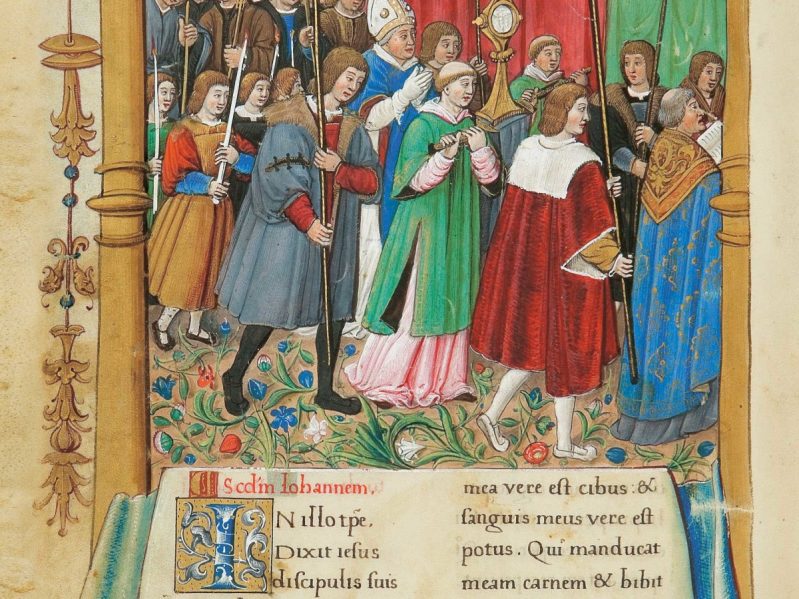 Scd̅m Iohannem.
IN illo tp̅e.
Dixit iesus
discipulis suis
mea vere est cibus: &
sanguis meus vere est
potus. Qui manducat
meam carnem & bibit